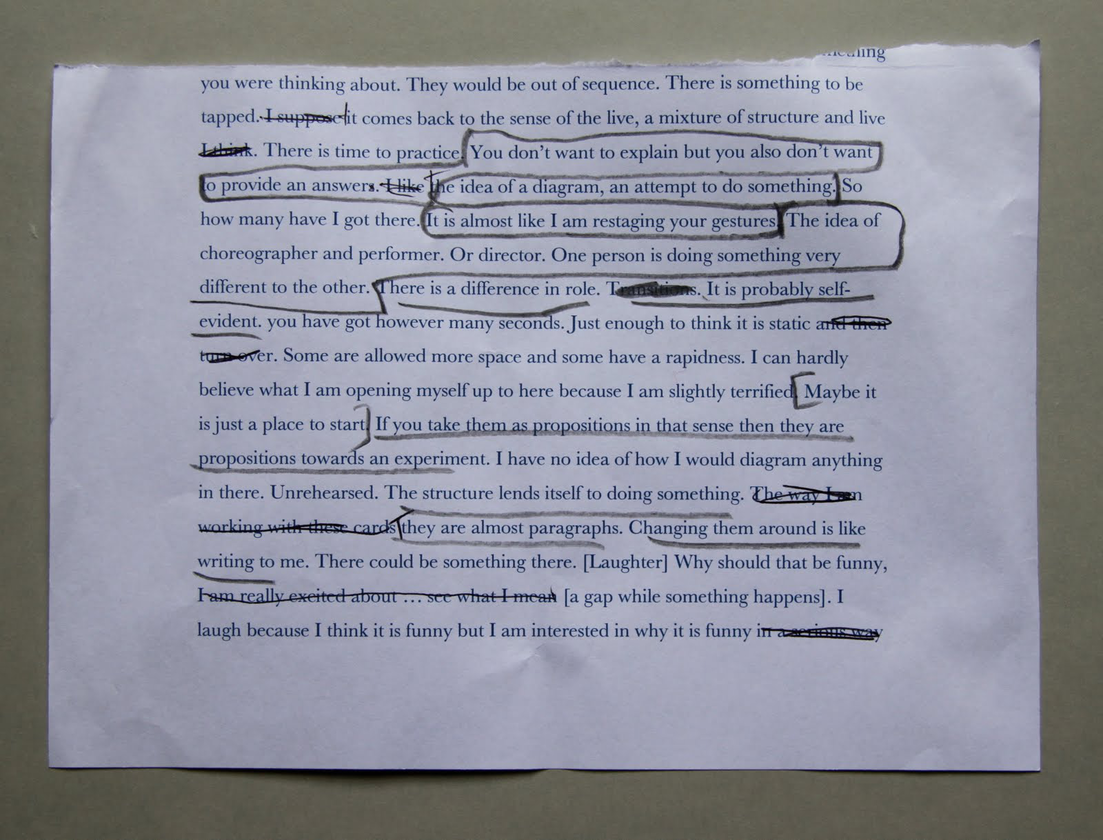 you were thinking about. They would be out of sequence. There is something to be
tapped. I suppose it comes back to the sense of the live, a mixture of structure and live
I think. There is time to practice. You don't want to explain but you also don't want
to provide an answers. I like the idea of a diagram, an attempt to do something. So
how many have I got there. It is almost like I am restaging your gestures. The idea of
choreographer and performer. Or director. One person is doing something very
different to the other. There is a difference in role. Transitions. It is probably self-
evident. you have got however many seconds. Just enough to think it is static and then
turn over. Some are allowed more space and some have a rapidness. I can hardly
believe what I am opening myself up to here because I am slightly terrified. Maybe it
is just a place to start. If you take them as propositions in that sense then they are
propositions towards an experiment. I have no idea of how I would diagram anything
in there. Unrehearsed. The structure lends itself to doing something. The way I am
working with these cards they are almost paragraphs. Changing them around is like
writing to me. There could be something there. [Laughter] Why should that be funny,
I am really excited about … see what I mean [a gap while something happens]. I
laugh because I think it is funny but I am interested in why it is funny in a serious way